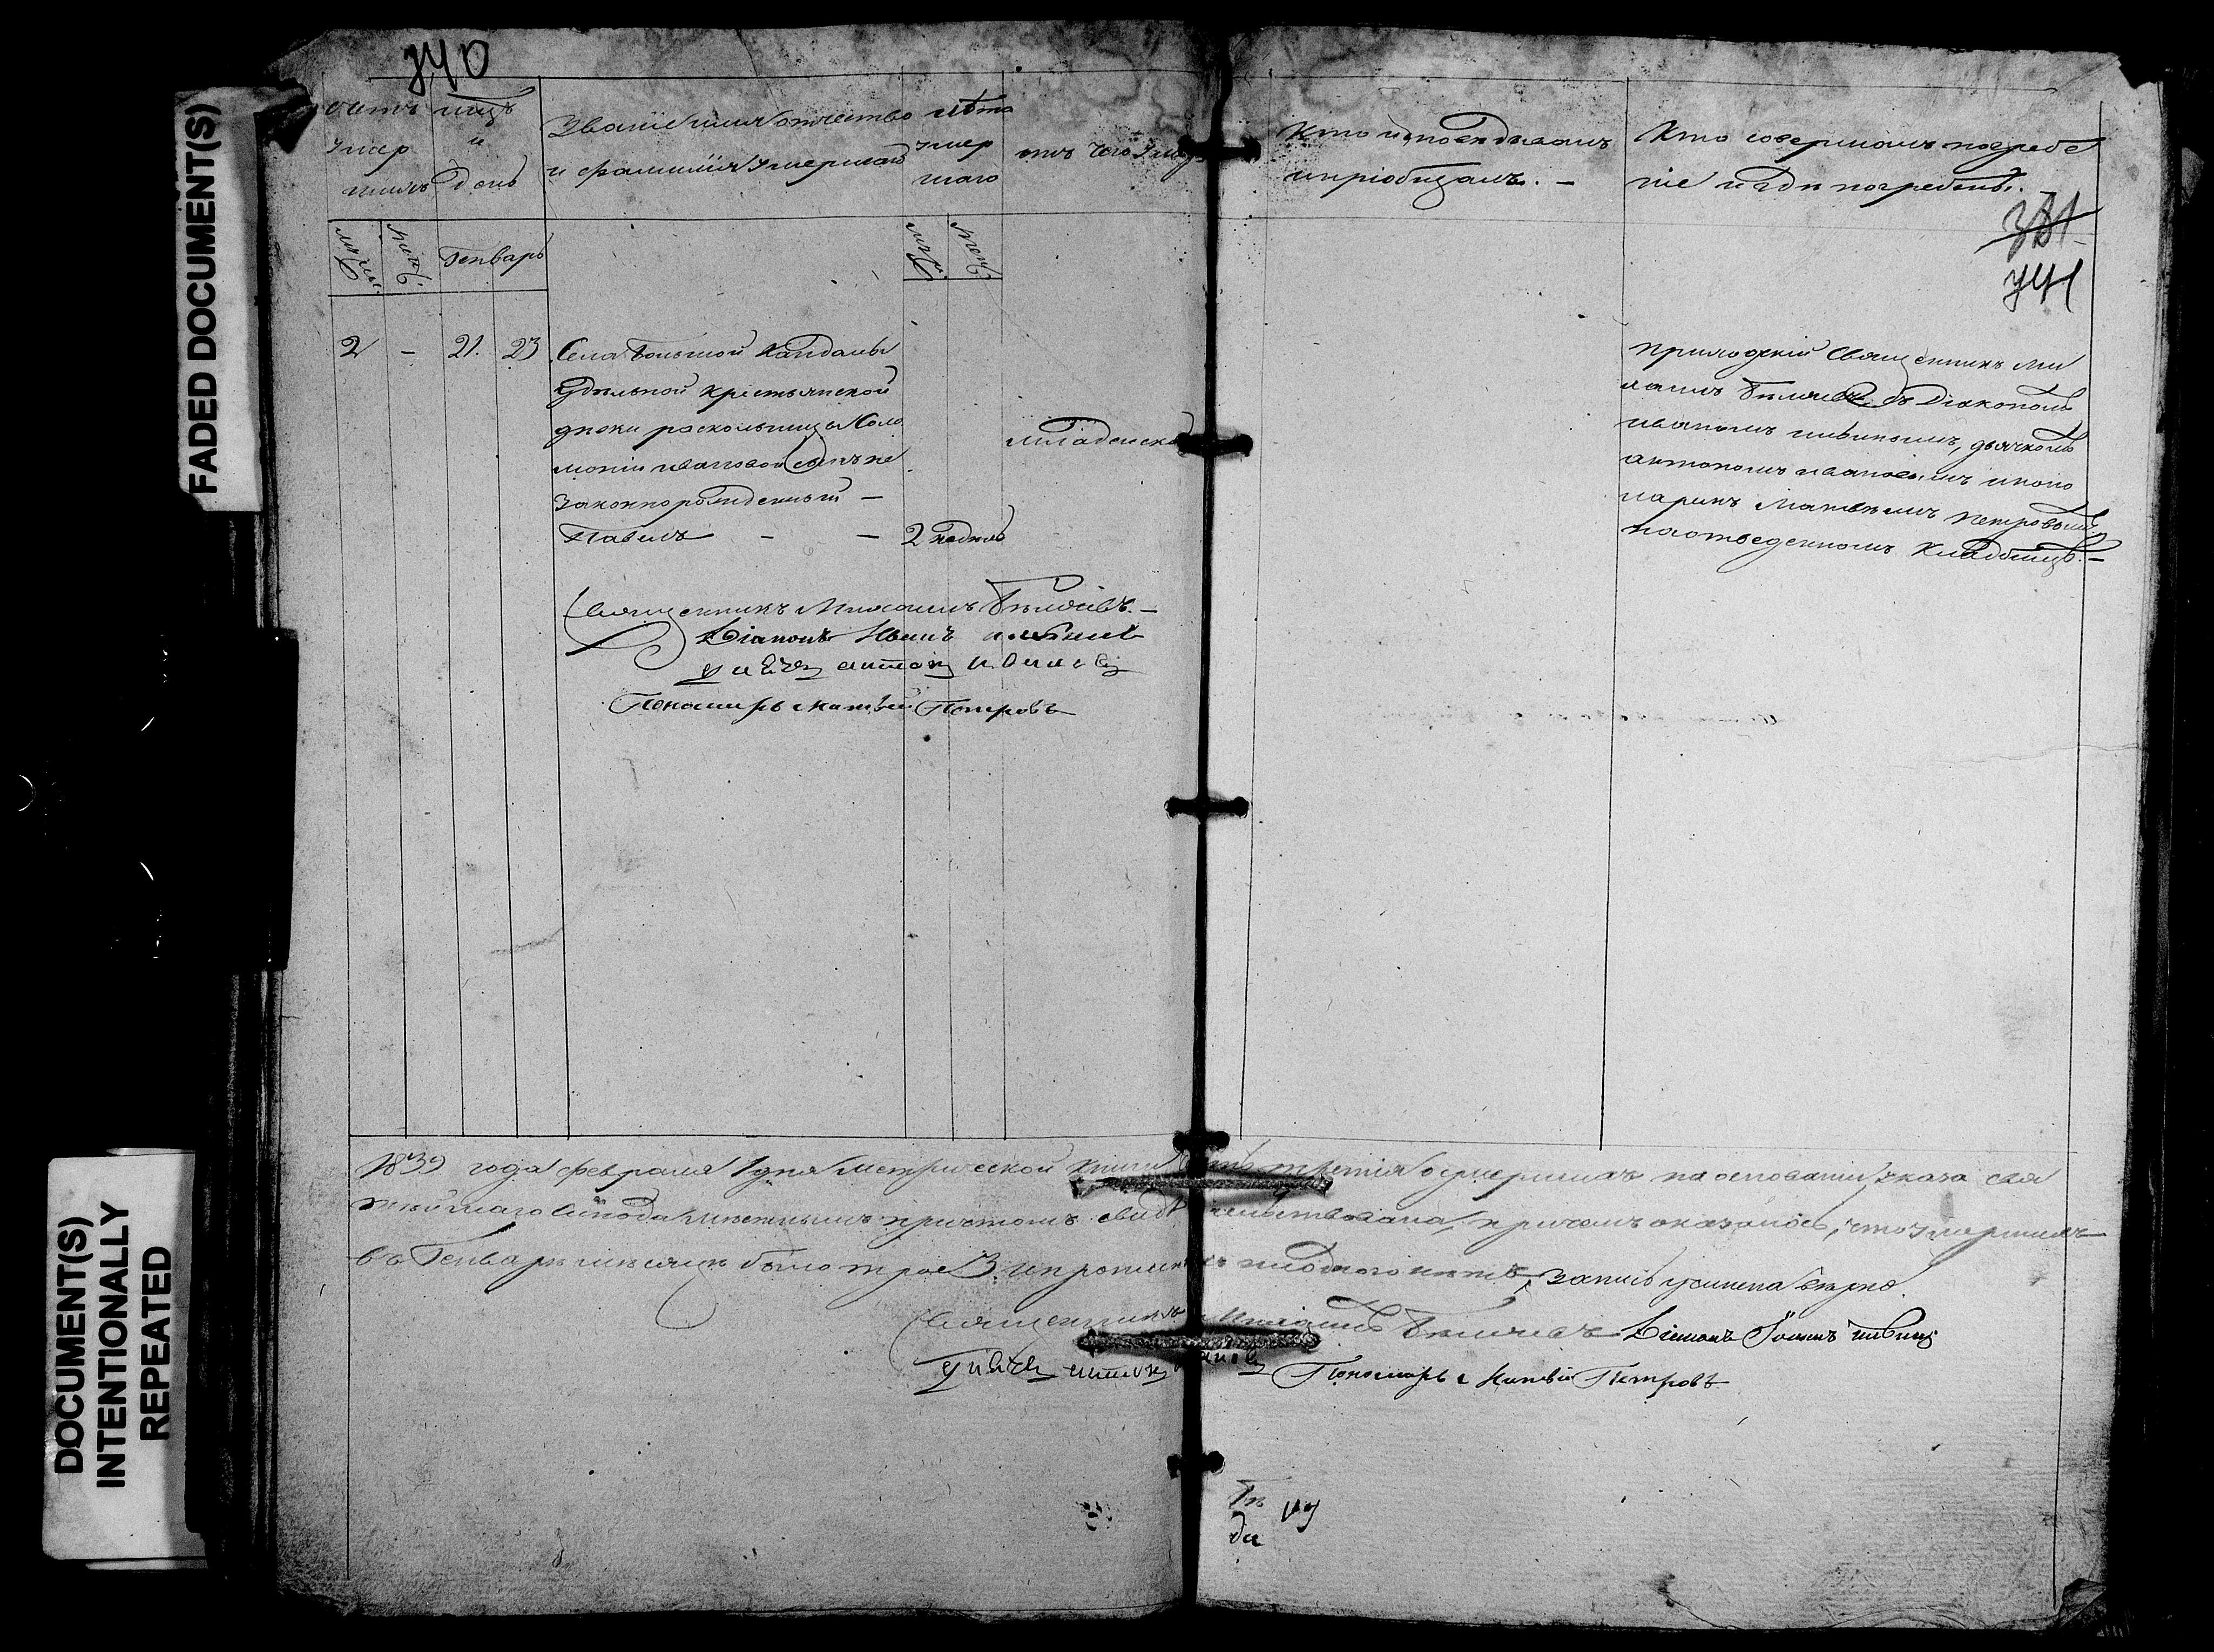 FADED DOCUMENT(S)
DOCUMENT(S)
INTENTIONALLY
REPEATED
740
счетъ
умер
шимъ
мцъ
и
день
Званіе имя отчество
и фамилія умершаго
лѣта
умер
шаго
отъ чего умеръ
Кто исповѣдывалъ
и пріобщалъ. —
Кто совершалъ погребе
ніе и гдѣ погребены.
381
741
муж.
жен.
Генварь
муж.
жен.
2 – 21. 23
Села Большой Кандалы
удѣльной крестьянской
дѣвки раскольницы Соло
моніи Ивановой сынъ не
законнорожденный —
Павелъ – – 2 недѣль
младенска
приходскій Священникъ Ми
хаилъ Бѣляевъ съ Діакономъ
Иваномъ Ливиномъ, дьячкомъ
Антономъ Ивановымъ и поно
маремъ Матвѣемъ Петровымъ
на отведенномъ Кладбищѣ. —
Священникъ Михаилъ Бѣляевъ. —
Діаконъ Иванъ
дьячекъ Антонъ Ивановъ
Пономарь Матвѣй Петровъ
1839 года февраля 1 дня метрической книги часть третія о умершихъ на основаніи указа свя
тѣйшаго Синода мѣстнымъ причтомъ свидѣтельствована, причемъ оказалось, что умершихъ
въ Генварѣ мѣсяцѣ было трое 3. и запись учинена вѣрно.
Священникъ Михаилъ Бѣляевъ Діаконъ Іоаннъ
дьячекъ Антонъ Ивановъ Пономарь Матвѣй Петровъ